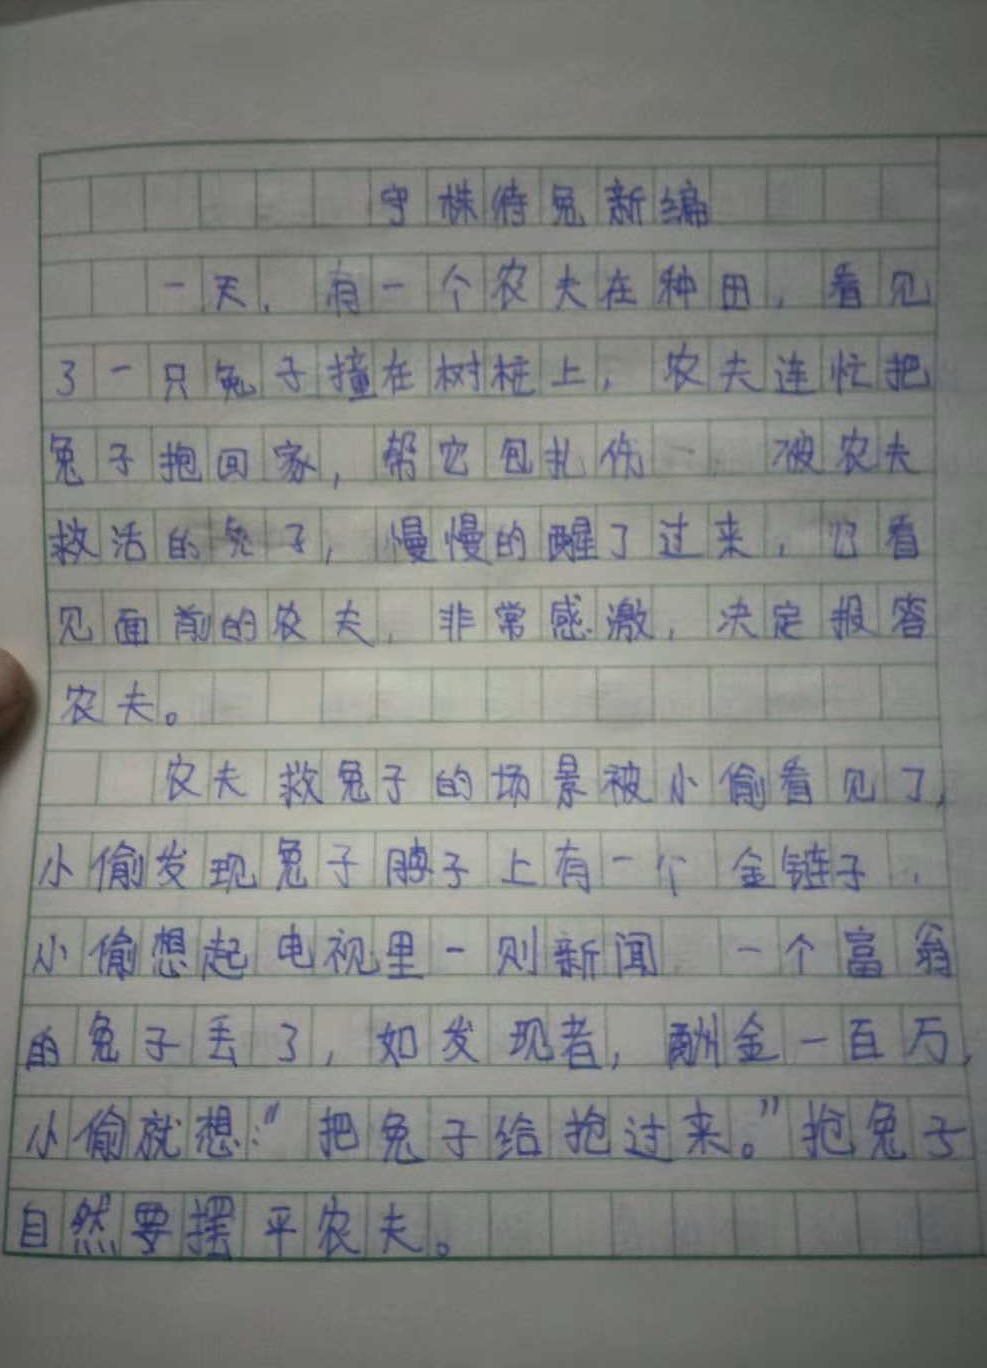 守株待兔新编
一天，有一个农夫在种田，看见
了一只兔子撞在树桩上，农夫连忙把
兔子抱回家，帮它包扎伤 被农夫
救活的兔子，慢慢的醒了过来，它看
见面前的农夫，非常感激，决定报答
农夫。
农夫救兔子的场景被小偷看见了，
小偷发现兔子脖子上有一个金链子，
小偷想起电视里一则新闻 一个富翁
的兔子丢了，如发现者，酬金一百万，
小偷就想：“把兔子给抢过来。”抢兔子
自然要摆平农夫。